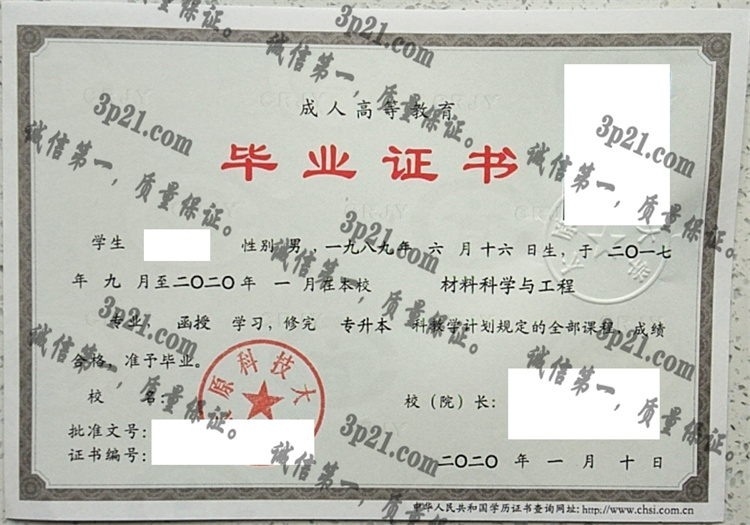 成人高等教育
毕业证书
学生 性别 男 ,一九八九年 六 月十六日生，于 二〇一七
年 九 月至二〇二〇年 一 月在本校 材料科学与工程
专业 函授 学习，修完 专升本 科教学计划规定的全部课程，成绩
合格，准予毕业。
校 名：
原科技大
校（院）长：
批准文号：
证书编号：
二〇二〇 年 一 月 十 日
中华人民共和国学历证书查询网址：http://www.chsi.com.cn
3p21.com
诚信第一，质量保证。
3p21.com
诚信第一，质量保证。
3p21.com
诚信第一，质量保证。
3p21.com
诚信第一，质量保证。
3p21.com
诚信第一，质量保证。
3p21.com
诚信第一，质量保证。
3p21.com
诚信第一，质量保证。